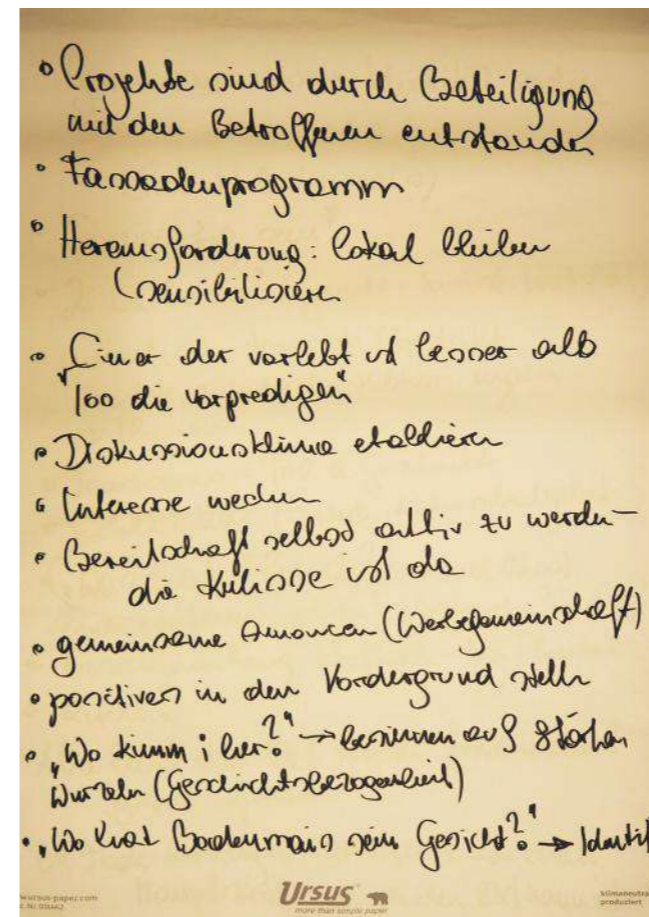 • Projekte sind durch Beteiligung
mit den Betroffenen entstanden
• Fassadenprogramm
• Herausforderung: lokal bleiben
(sensibilisieren
• "Einer der vorlebt ist besser als
100 die vorpredigen"
• Diskussionsklima etablieren
• Interesse wecken
• Bereitschaft selbst aktiv zu werden –
die Kulisse ist da
• gemeinsame Annoncen (Werbegemeinschaft)
• positives in den Vordergrund stelln
• „Wo kimm i her?" → besinnen auf Stärken
Wurzeln (Geschichtsbezogenheit)
• „Wo hat Bodenmais sein Gesicht?" → Identit
Ursus
more than simple paper
klimaneutra
produziert